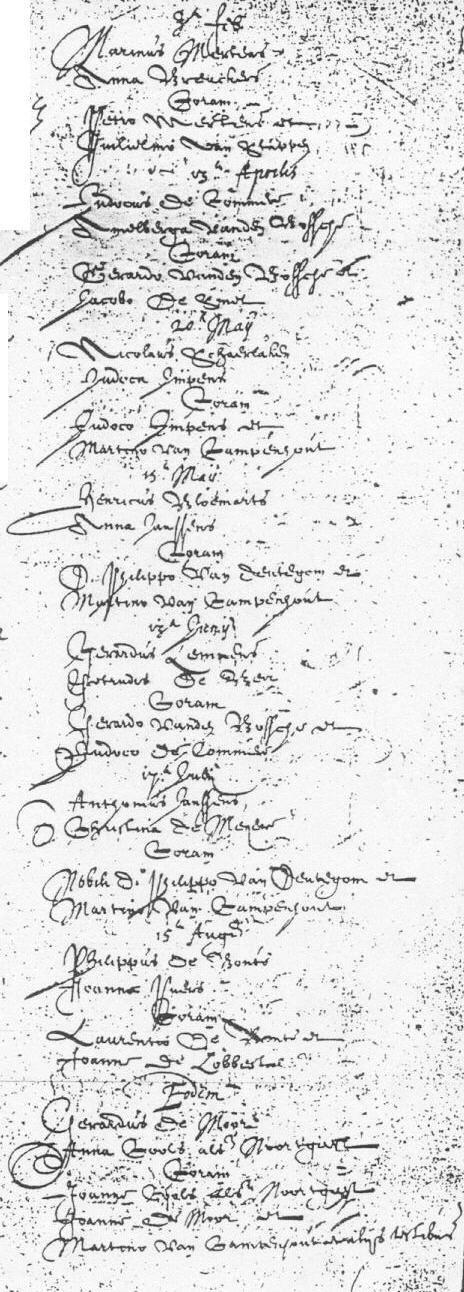 feb
Marinus Mertens
Anna Breuchers
Coram
Petro Mertens et
Guilielmo Van
Aprilis
Judocus De Commere
Amelberga Vanden Bossche
Coram
Gerardo Vanden Bossche et
Jacobo De Smet
20ª Maÿ
Nicolaus Schaerlaken
Judoca Impens
Coram
Judoco Impens et
Martino Van Campenhout
15ª Maÿ
Henricus Bloemarts
Anna Janssens
Coram
D. Philippo Van Deutegem et
Martino Van Campenhout
Junÿ
Gerardus Lemmens
Gertrudis De
Coram
Gerardo Vanden Bossche et
Judoco De Commere
17ª Julÿ
Anthonius Janssens
Christina de
Coram
Nobili D. Philippo Van Deutegom et
Martino Van Campenhout
15ª Augti
Philippus De Bonte
Joanna
Coram
Laurentio De Bonte et
Joanne De Lobbestal
Eodem
Gerardus de Moor
Anna Cools als
Coram
Joanne Cools als
Joanne De Moor et
Martino Van Campenhout et alijs testibus